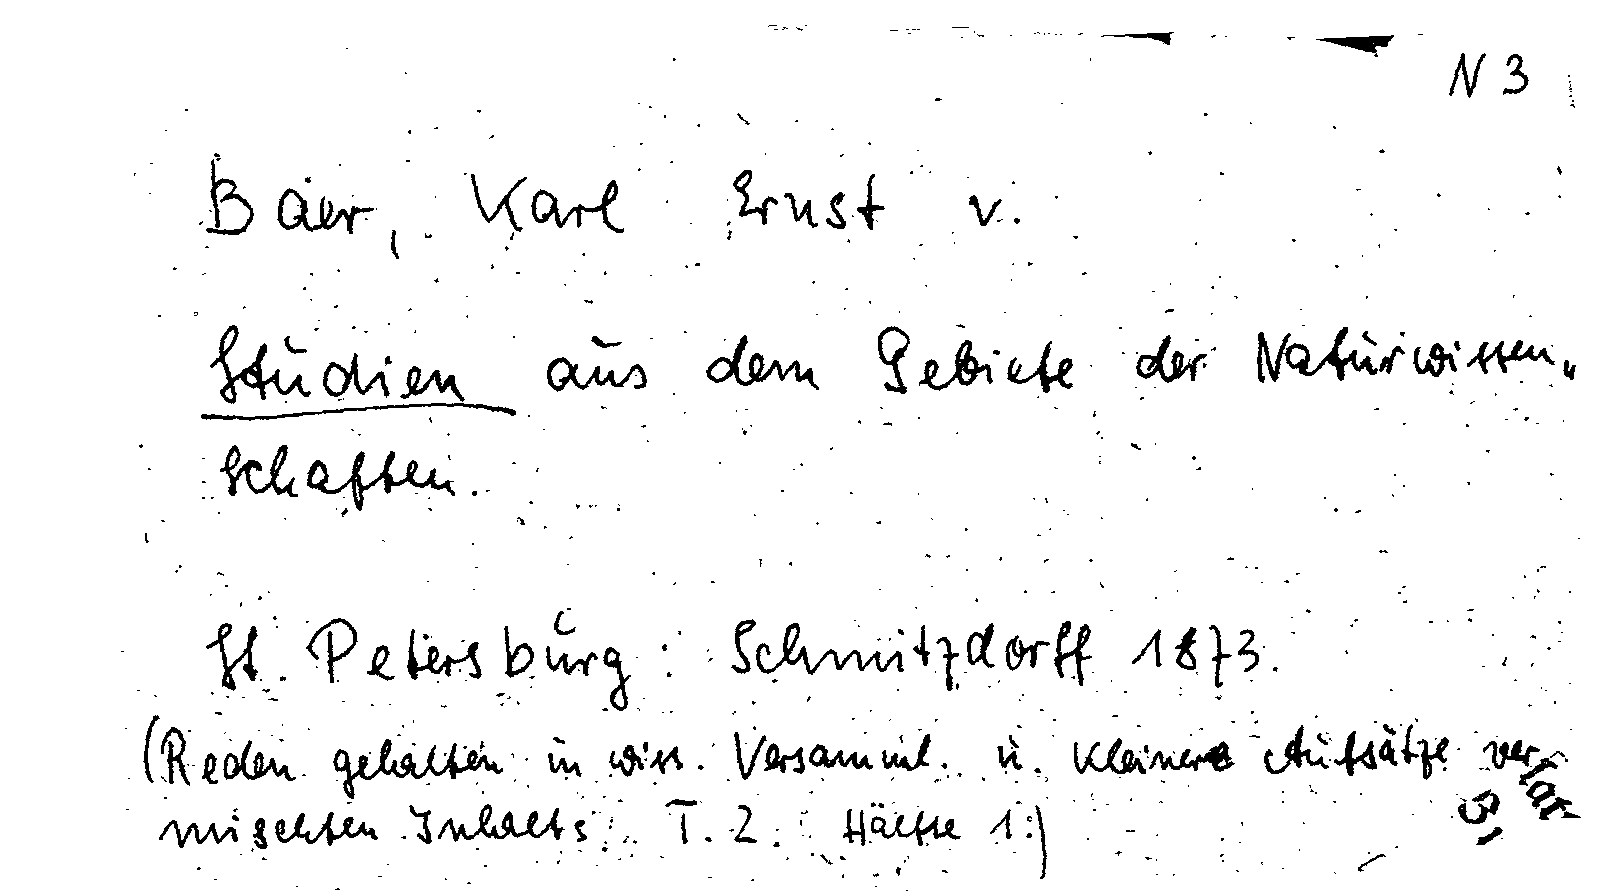 N 3
Baer, Karl Ernst v.
Studien aus dem Gebiete der Naturwissen„
schaften.
St. Petersburg: Schmitzdorff 1873.
(Reden gehalten in wiss. Versamml. u. kleinere Aufsätze ver
mischten Inhalts. T. 2. Hälfte 1.)